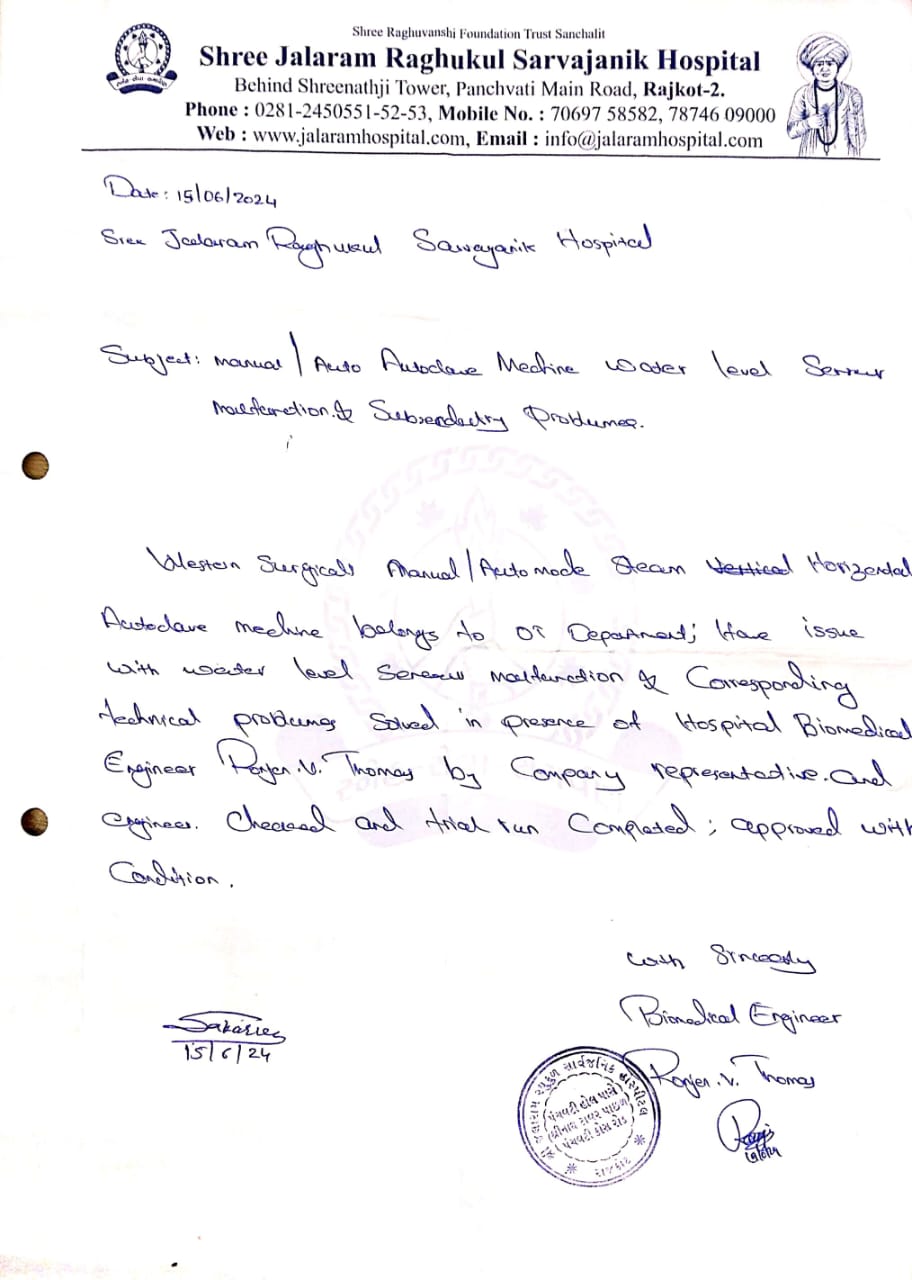 Shree Raghuvanshi Foundation Trust Sanchalit
Shree Jalaram Raghukul Sarvajanik Hospital
Behind Shreenathji Tower, Panchvati Main Road, Rajkot-2.
Phone : 0281-2450551-52-53, Mobile No. : 70697 58582, 78746 09000
Web : www.jalaramhospital.com, Email : info@jalaramhospital.com
Date: 15/06/2024
Jalaram Raghukul Hospital
Subject: Manual / Auto Autoclave Machine water level
&
Western Surgicals Manual / Auto mode Steam Vertical Horizontal
Autoclave machine belongs to OT Department; Have issue
with water level & Corresponding
technical Solved in presence of Hospital Biomedical
Engineer V. Thomas by Company representative. and
engineer. and trial run Completed; approved with
Condition.
with
Biomedical Engineer
V. Thomas
15/6/24
શ્રી જલારામ રઘુકુળ સાર્વજનિક હોસ્પીટલ